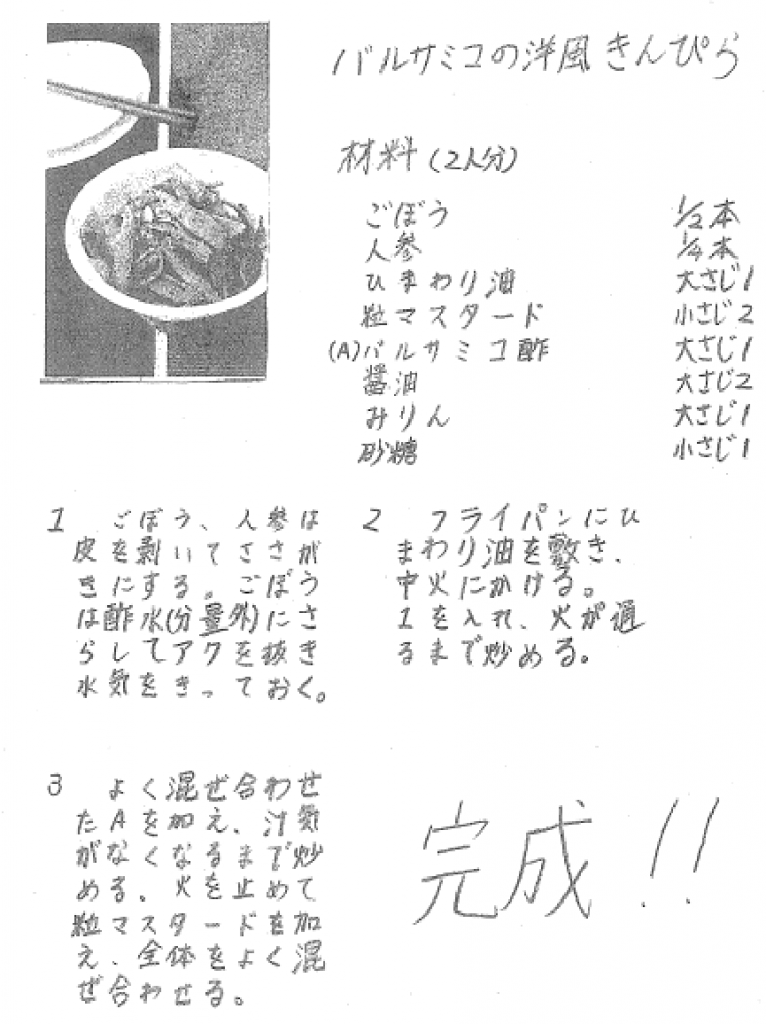 バルサミコの洋風きんぴら
材料(2人分)
ごぼう 1/2本
人参 1/4本
ひまわり油 大さじ1
粒マスタード 小さじ2
(A)バルサミコ酢 大さじ1
醤油 大さじ2
みりん 大さじ1
砂糖 小さじ1
1 ごぼう、人参は
皮を剥いてささが
きにする。ごぼう
は酢水(分量外)にさ
らしてアクを抜き
水気をきっておく。
2 フライパンにひ
まわり油を敷き、
中火にかける。
1を入れ、火が通
るまで炒める。
3 よく混ぜ合わせ
たAを加え、汁気
がなくなるまで炒
める。火を止めて
粒マスタードを加
え、全体をよく混
ぜ合わせる。
完成!!